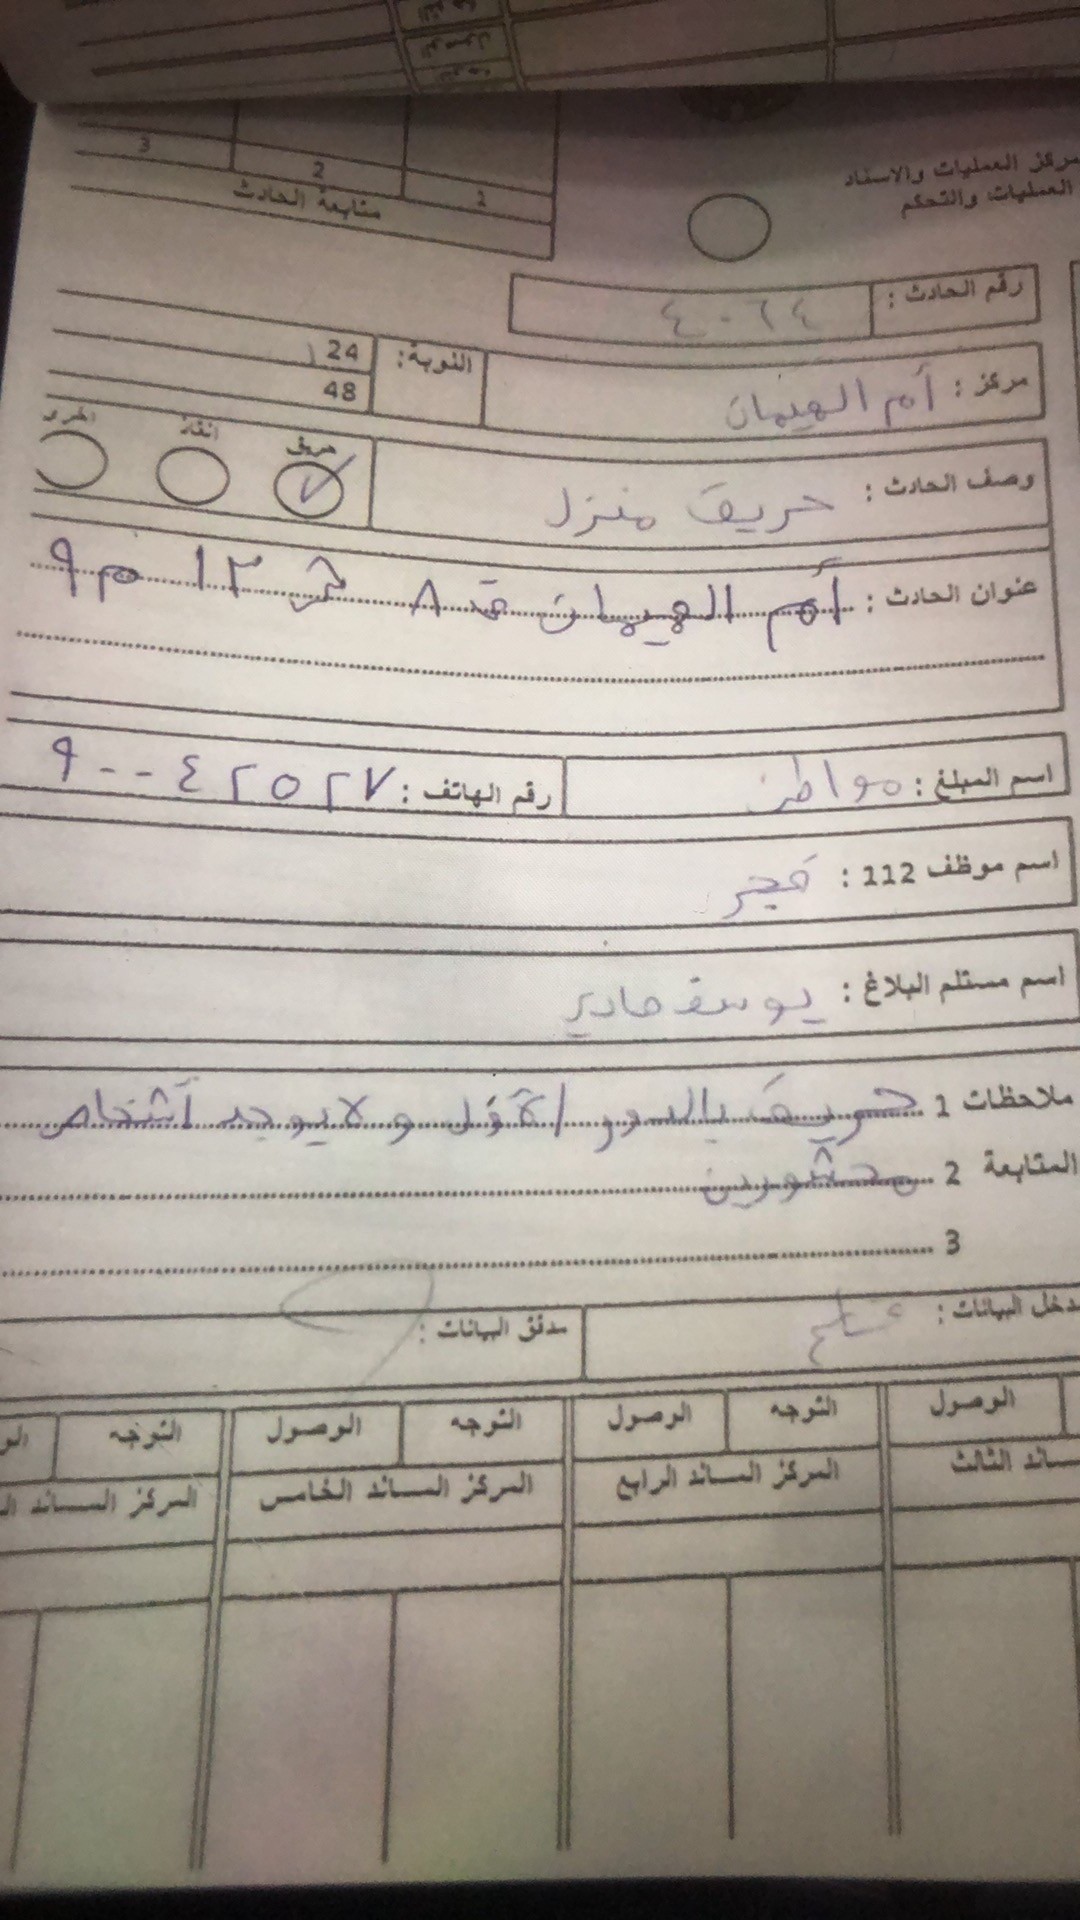 مركز العمليات والاسناد
العمليات والتحكم
3 2 1
متابعة الحادث
رقم الحادث : ٤٠٦٤
مركز : أم الهيمان
النوبة: 24
48
وصف الحادث : حريق منزل
حريق انقاذ اخرى
عنوان الحادث : أم الهيمان ق ٨ ش ١٢ م ٩
اسم المبلغ : مواطن رقم الهاتف : ٩٠٠٤٢٥٢٧
اسم موظف 112 : فجر
اسم مستلم البلاغ : يوسف
ملاحظات 1 حريق بالدور الأول ولا يوجد أشخاص
المتابعة 2 محشورين
3
مدخل البيانات : مدقق البيانات :
الوصول التوجه الوصول التوجه الوصول التوجه
ساند الثالث المركز المساند الرابع المركز المساند الخامس المركز المساند